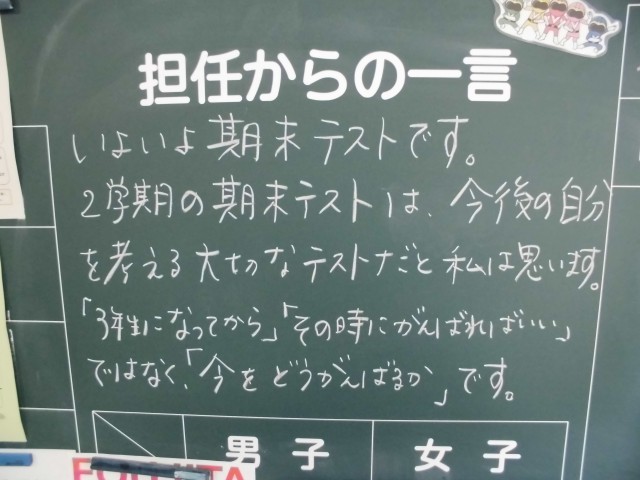 担任からの一言
いよいよ期末テストです。
2学期の期末テストは、今後の自分
を考える大切なテストだと私は思います。
「3年生になってから」「その時にがんばればいい」
ではなく、「今をどうがんばるか」です。
男子 女子